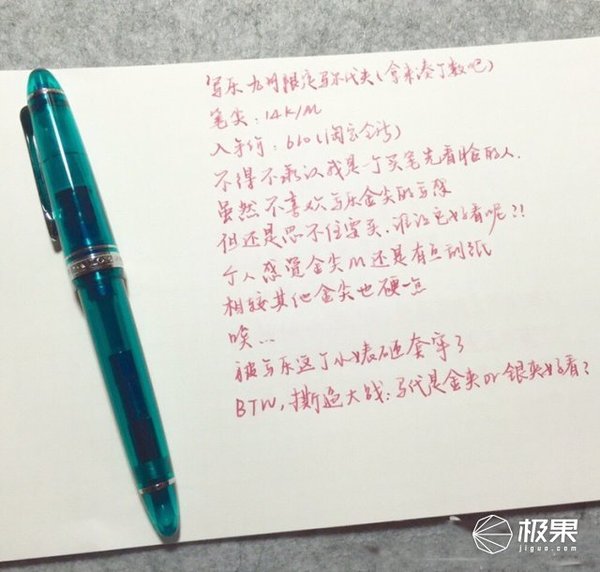 写乐 九州限定马尔代夫(拿来凑丁数吧)
笔尖:14K/M
入手价:610(淘宝全新)
不得不承认我是个买笔先看脸的人.
虽然不喜欢写乐金尖的手感
但还是忍不住要买.谁让它好看呢?!
个人感觉金尖M还是有点刮纸
相较其他金尖也硬一点
唉...
被写乐这个小婊砸套牢了
BTW,撕逼大战:马代是金夹or银夹好看?
极果
jiguo.com